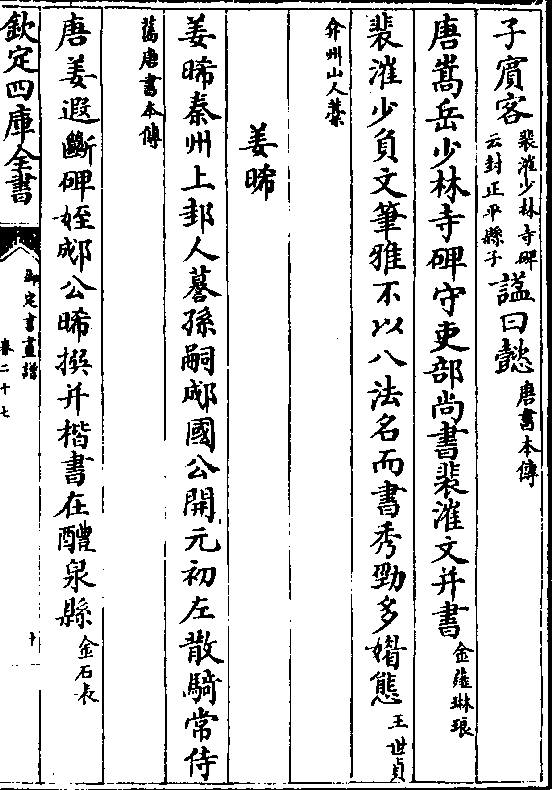 子賓客裴漼少林寺碑云封正平縣子諡曰懿唐書本傳
唐嵩岳少林寺碑守吏部尚書裴漼文并書金薤琳琅
裴漼少負文筆雅不以八法名而書秀勁多媚態王世貞
弇州山人藁
姜晞
姜晞秦州上邽人謩孫嗣郕國公開元初左散騎常侍
舊唐書本傳
唐姜遐斷碑姪郕公晞撰并楷書在醴泉縣金石表
欽定四庫全書
御定書畫譜
卷二十七
十